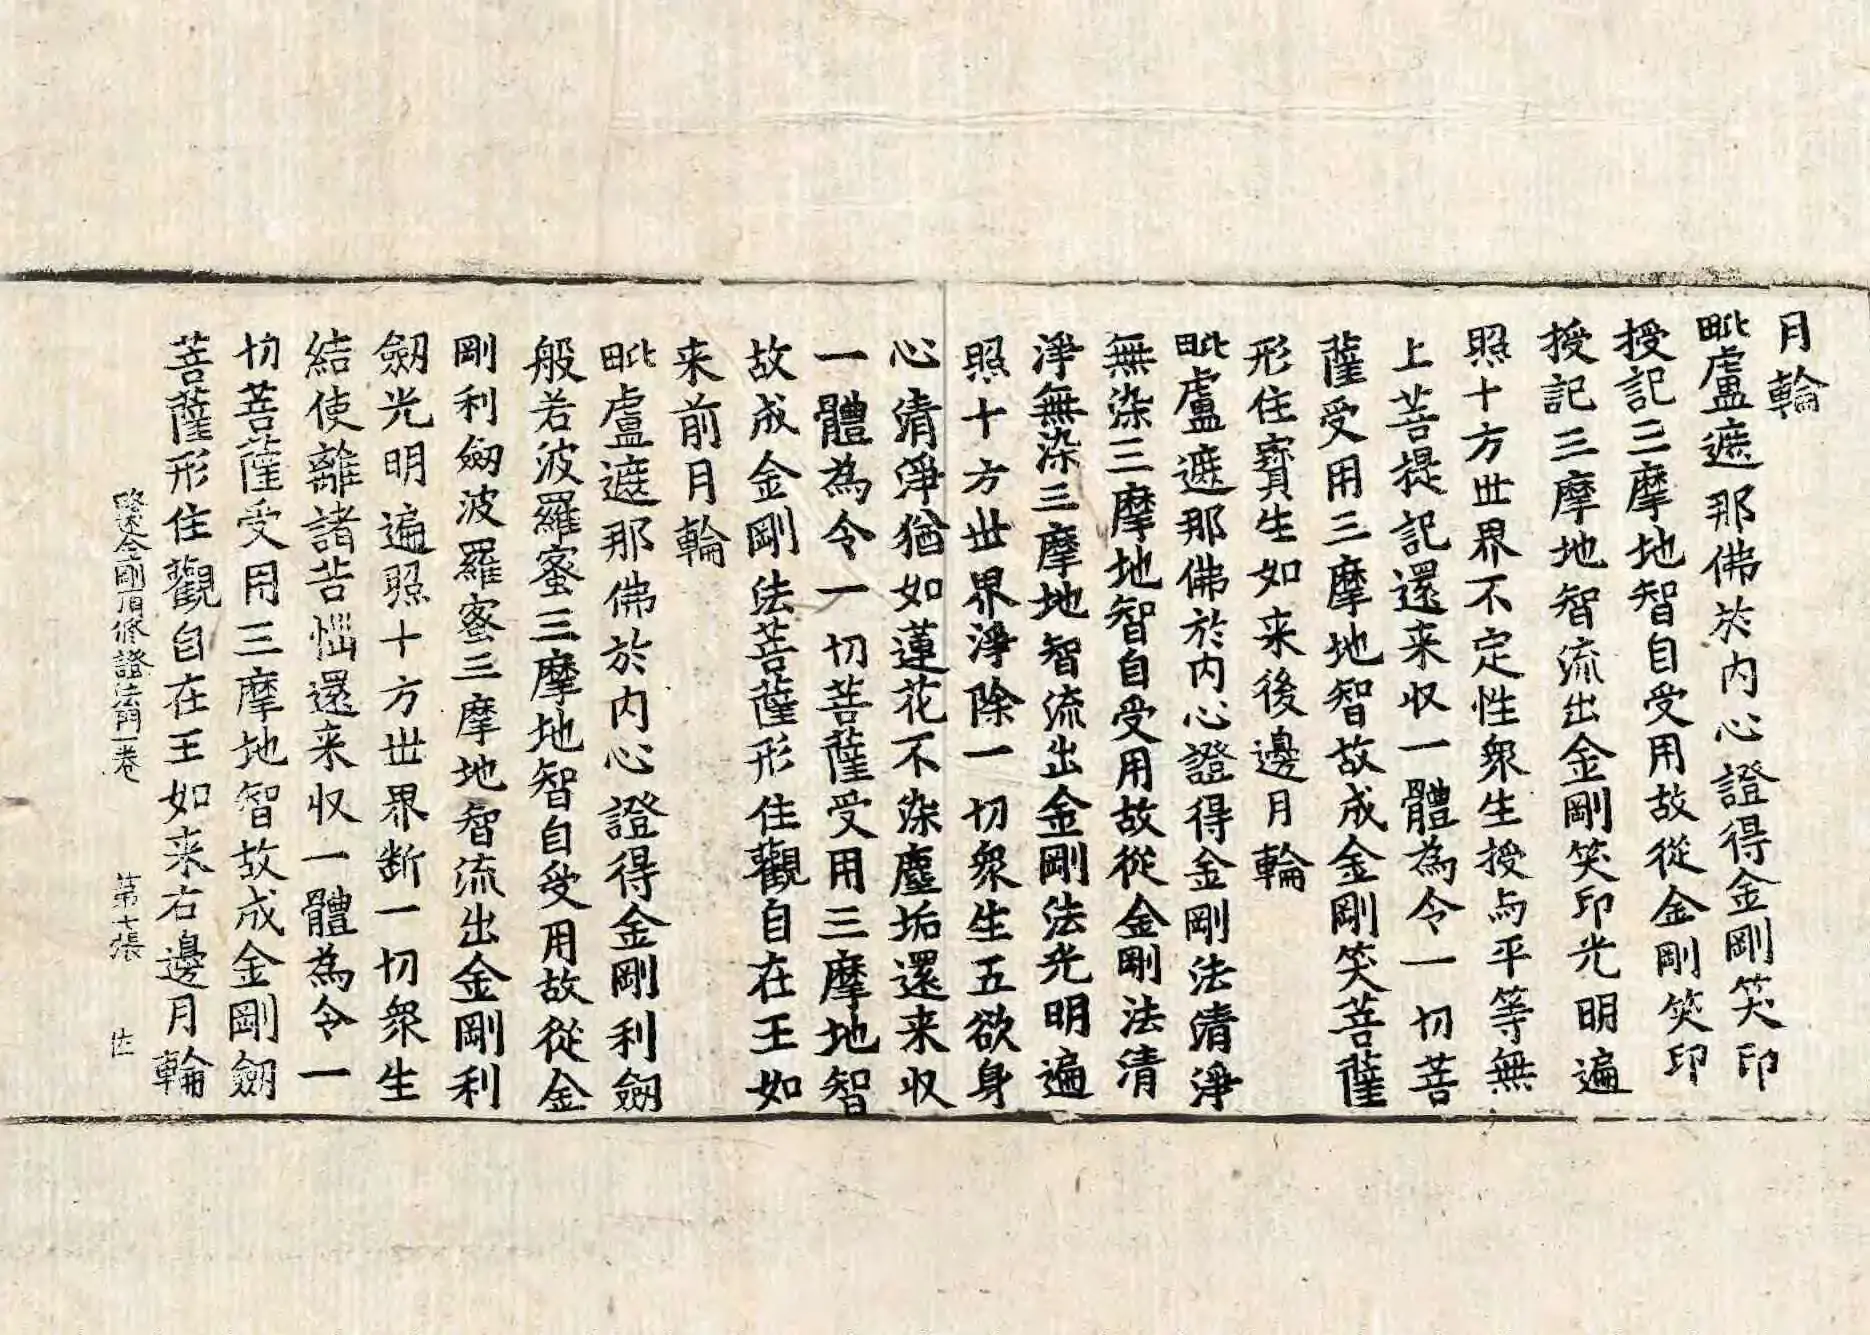 月輪
毗盧遮那佛於內心證得金剛笑印
授記三摩地智自受用故從金剛笑印
授記三摩地智流出金剛笑印光明遍
照十方世界不定性衆生授与平等無
上菩提記還来収一體為令一切菩
薩受用三摩地智故成金剛笑菩薩
形住寳生如来後邊月輪
毗盧遮那佛於內心證得金剛法清淨
無染三摩地智自受用故從金剛法清
淨無染三摩地智流出金剛法光明遍
照十方世界淨除一切衆生五欲身
心清淨猶如蓮花不染塵垢還来収
一體為令一切菩薩受用三摩地智
故成金剛法菩薩形住觀自在王如
来前月輪
毗盧遮那佛於內心證得金剛利劒
般若波羅蜜三摩地智自受用故從金
剛利劒波羅蜜三摩地智流出金剛利
劒光明遍照十方世界断一切衆生
結使離諸苦惱還来収一體為令一
切菩薩受用三摩地智故成金剛劒
菩薩形住觀自在王如来右邊月輪
略述金剛頂修證法門一卷 第七張